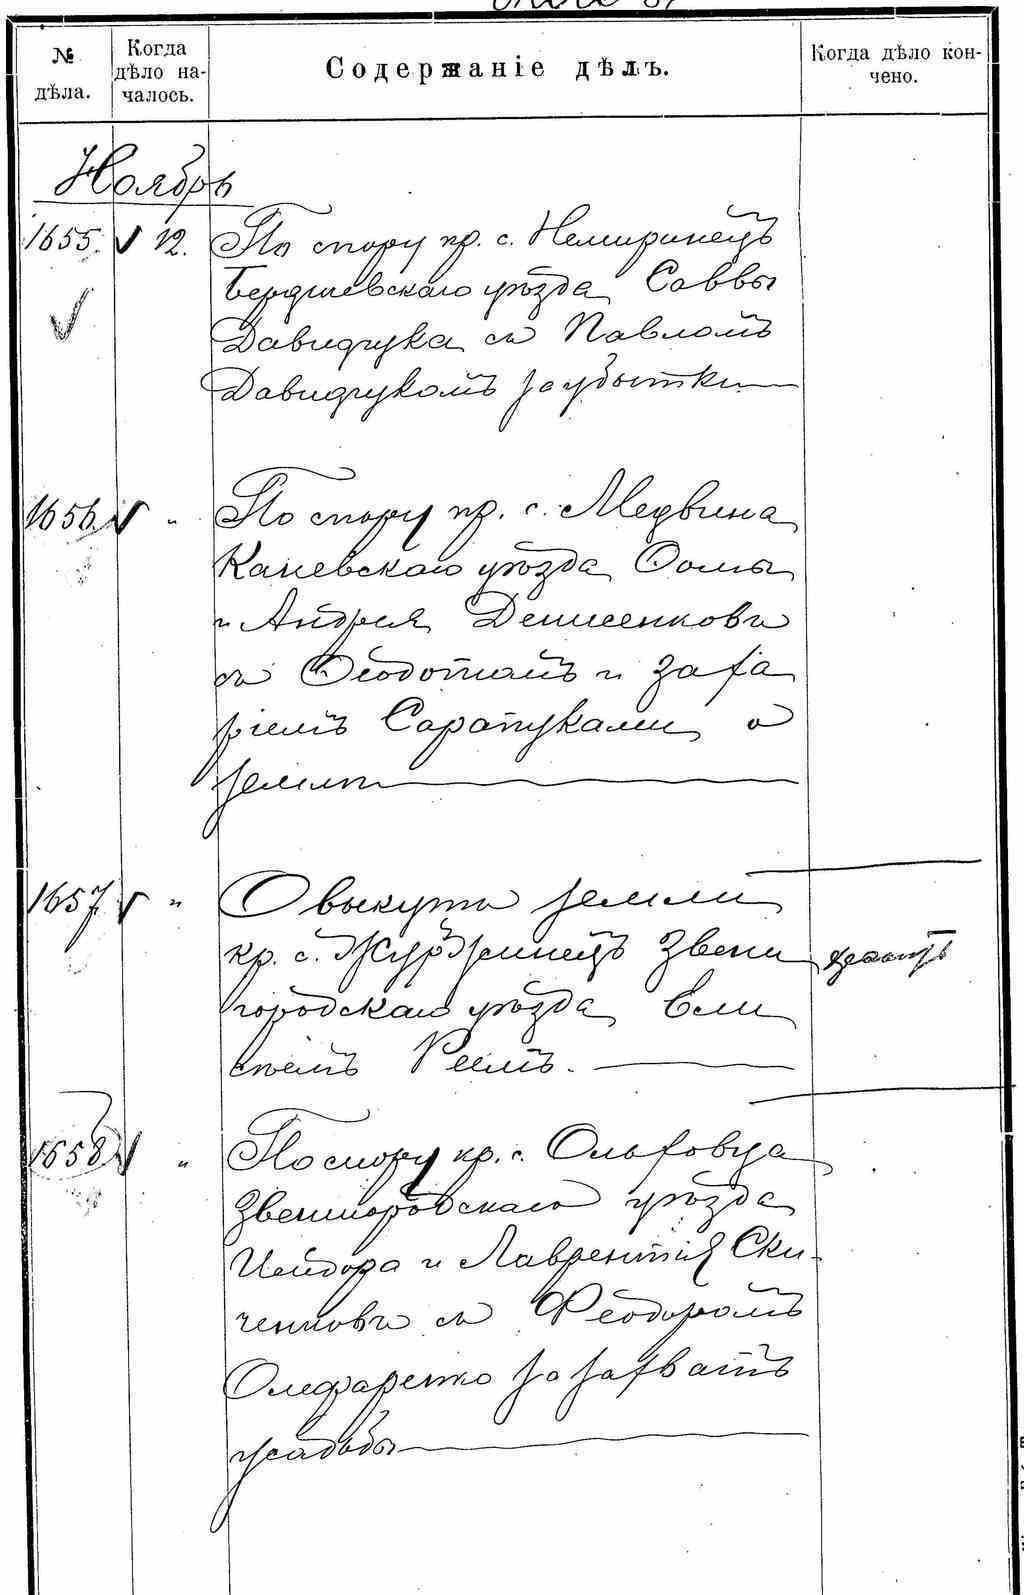 № дѣла.
Когда дѣло на-
чалось.
Содержаніе дѣлъ.
Когда дѣло кон-
чено.
Ноябрь
1655. 12. По спору кр. с. Немиринецъ
Бердичевскаго уѣзда Саввы
Давидчука съ Павломъ
Давидчукомъ за убытки
1656. " По спору кр. с. Медвина
Каневскаго уѣзда Ѳомы
и Андрея Денисенковъ
съ Ѳеодотомъ и Заха
ріемъ Сарапуками о
землѣ
1657. " О выкупѣ земли
кр. с. Журжинецъ Звени
городскаго уѣзда Ели
сѣемъ
1658 " По спору кр. с. Ольховца
Звенигородскаго уѣзда
Исидора и Лаврентія Ски-
ченковъ съ Феодоромъ
Олефаренко за захватъ
усадьбы